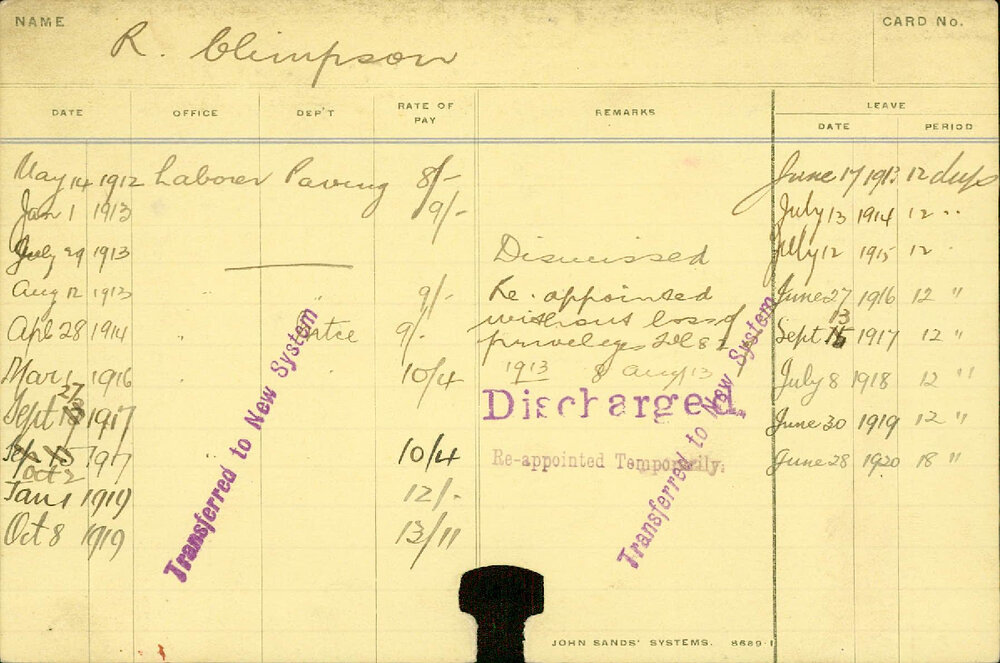 NAME
R. Climpson
CARD No.
DATE OFFICE DEP'T RATE OF PAY REMARKS LEAVE
DATE PERIOD
May 14 1912 Laborer Paving 8/- June 17 1913 12 days
Jan 1 1913 9/- July 13 1914 12 "
July 29 1913 Dismissed July 12 1915 12 "
Aug 12 1913 " " 9/- Re-appointed June 27 1916 12 "
Apl 28 1914 " 9/- without loss of Sept 13 1917 12 "
privileges
Mar 1 1916 " " 10/4 1913 8 Aug/13 July 8 1918 12 "
Sept 27 1917 Discharged. June 30 1919 12 "
Sep 15 1917 " 10/4 Re-appointed Temporarily. June 28 1920 18 "
Oct 2
Jan 1 1919 12/-
Oct 8 1919 13/11
Transferred to New System
Transferred to New System
JOHN SANDS' SYSTEMS. 8689-1